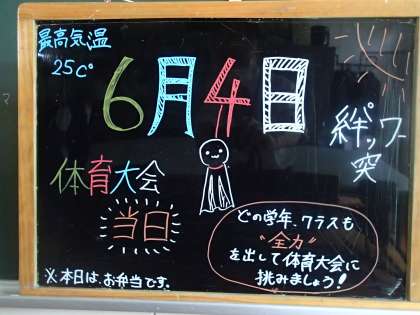 最高気温
25C°
6月4日
絆パワー
突
体育大会
当日
どの学年、クラスも
"全力"
を出して体育大会に
挑みましょう!
※本日は、お弁当です。